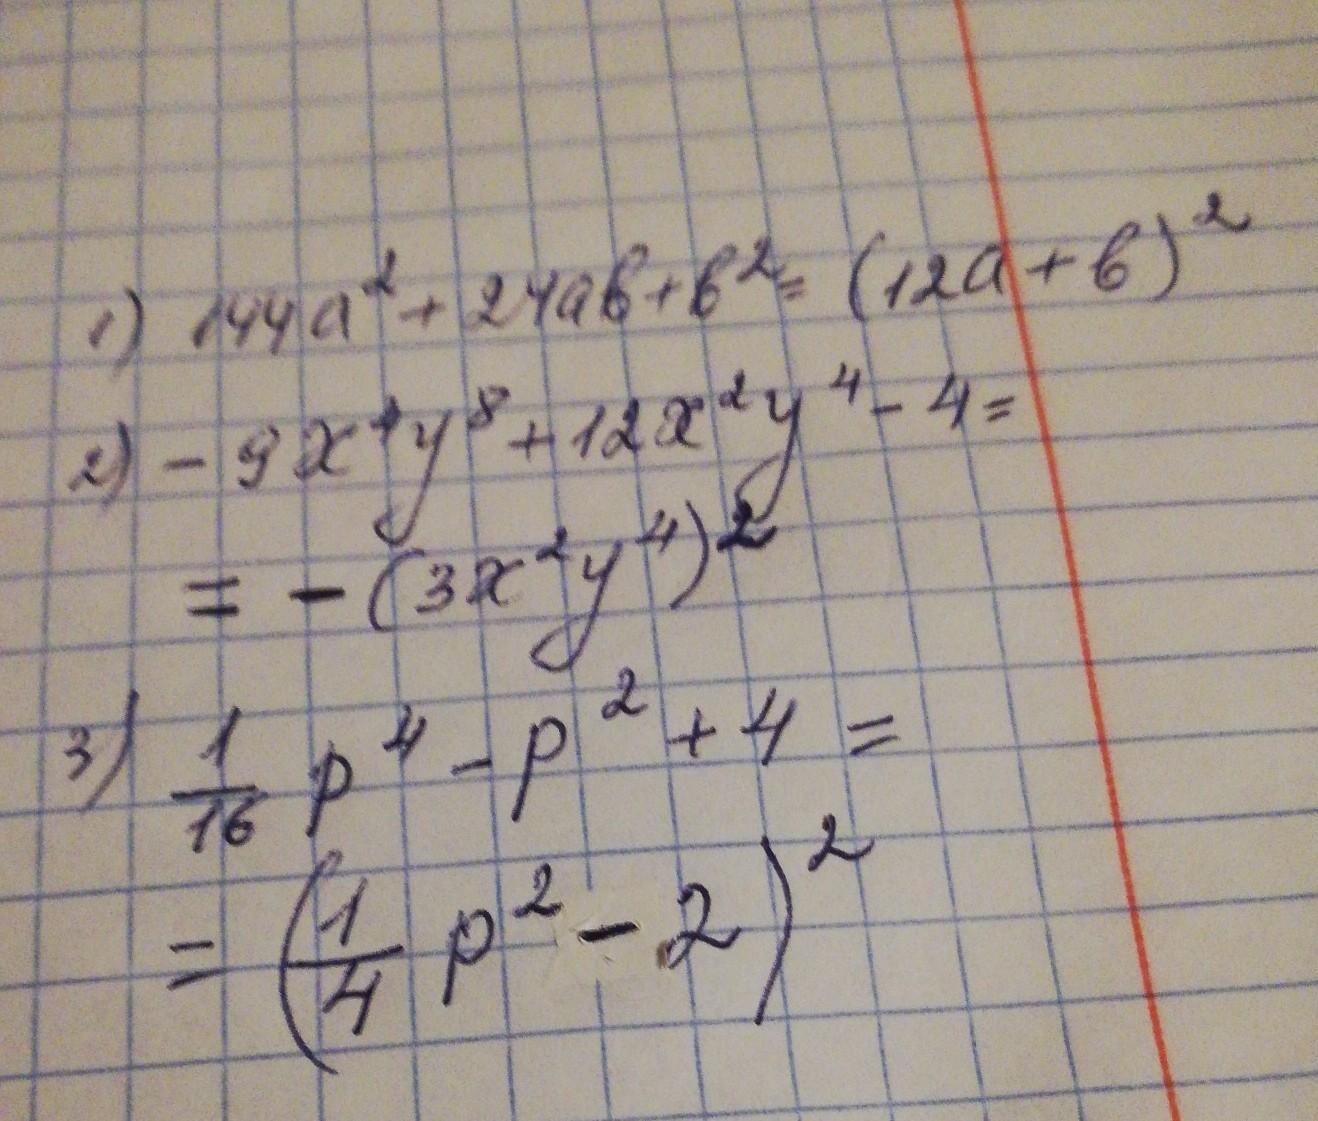 1) 144a² + 24ab + b² = (12a + b)²
2) - 9x⁴y⁸ + 12x²y⁴ - 4 =
= - (3x²y⁴)²
3) 1/16 p⁴ - p² + 4 =
= (1/4 p² - 2)²